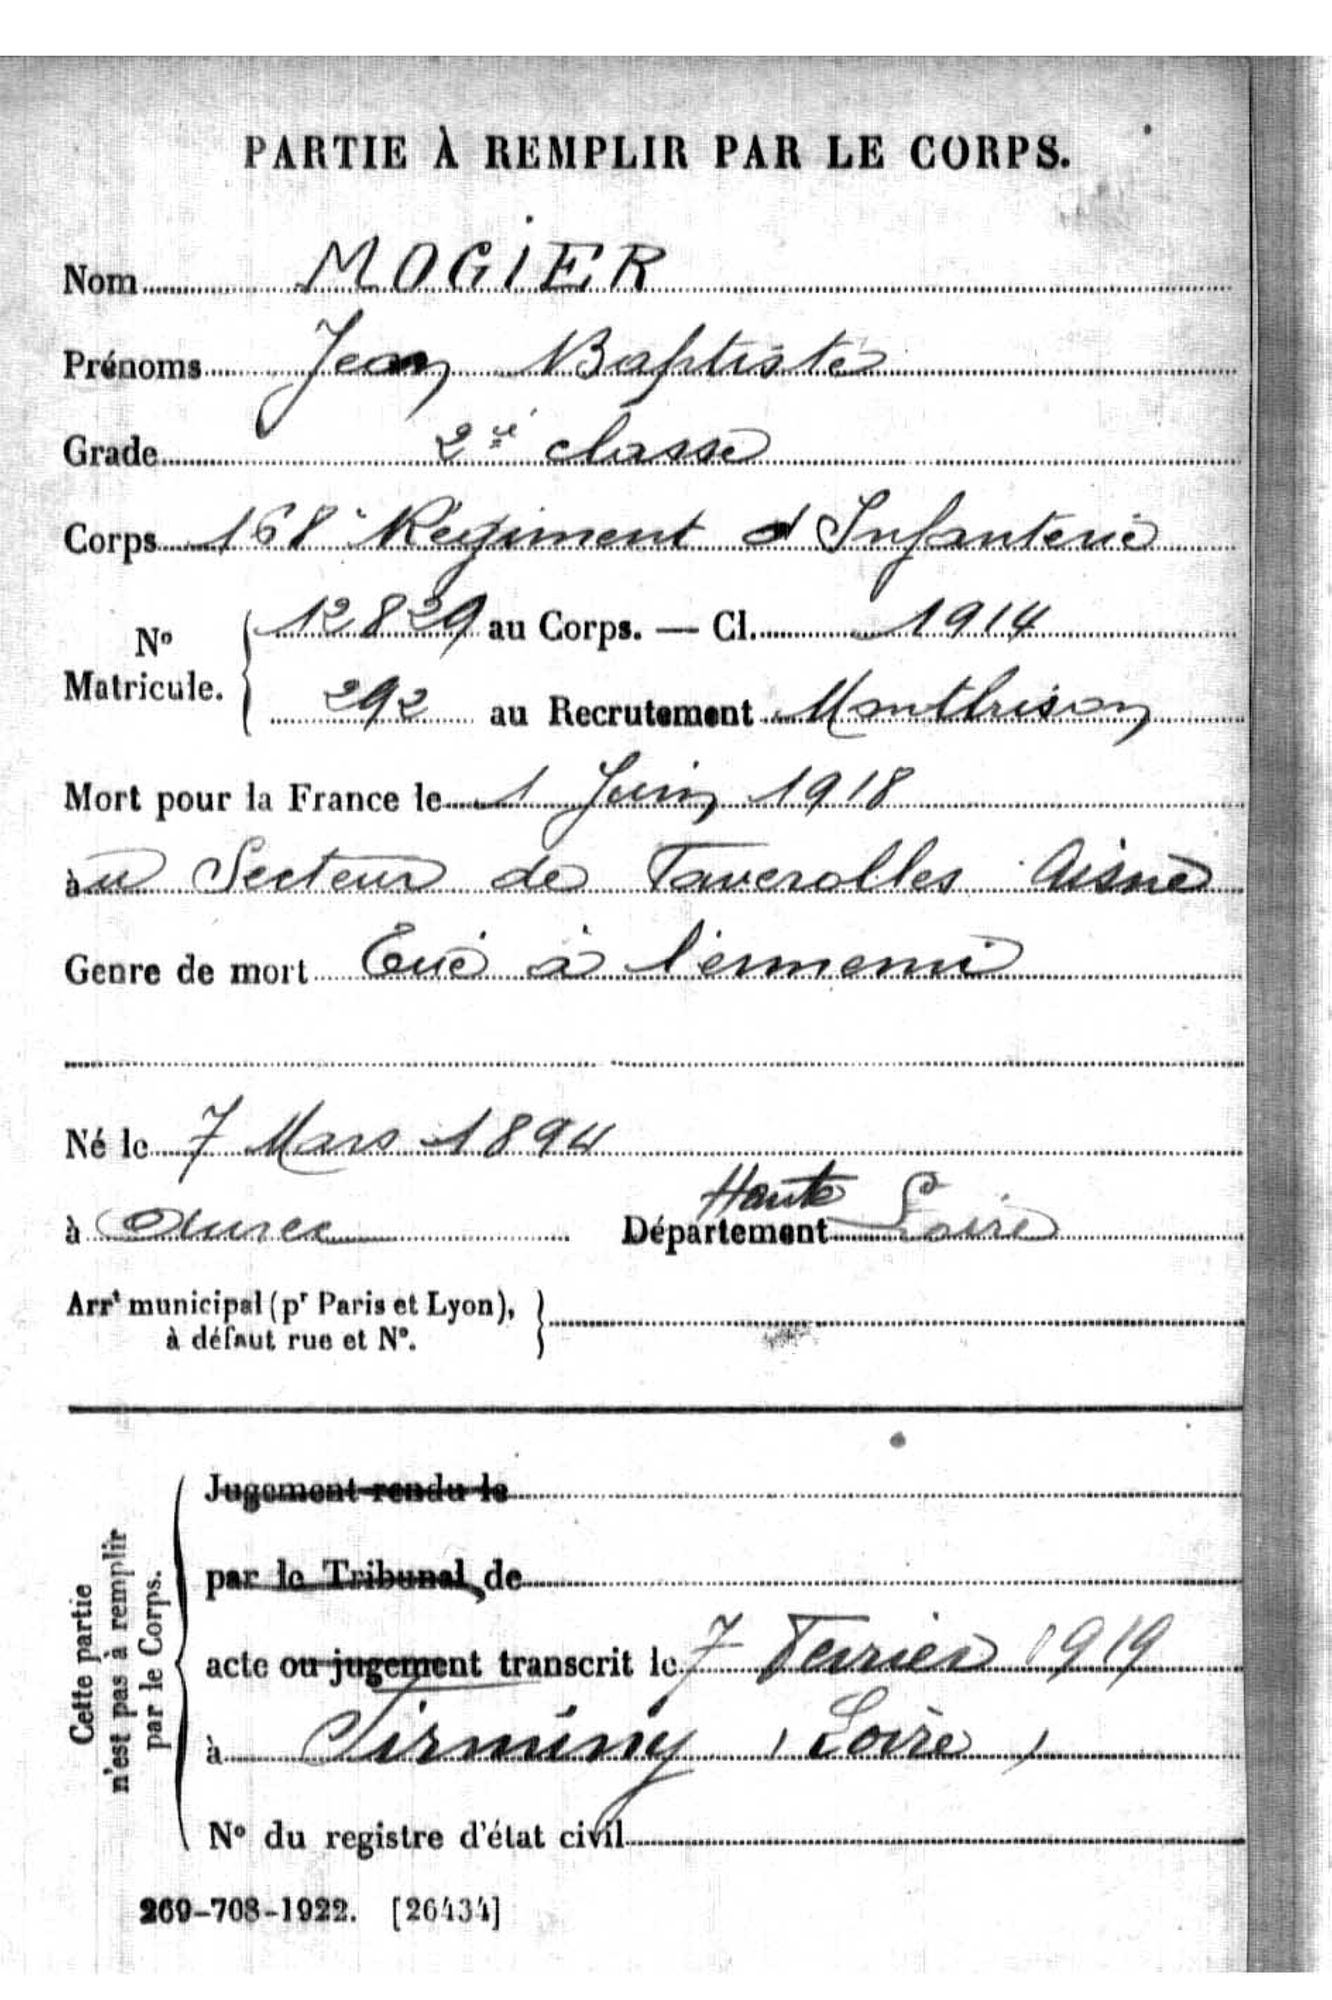 PARTIE À REMPLIR PAR LE CORPS.
Nom MOGIER
Prénoms Jean Baptiste
Grade 2e classe
Corps 168e Régiment d'Infanterie
No Matricule. { 12829 au Corps. — Cl. 1914
292 au Recrutement Montbrison
Mort pour la France le 1 Juin 1918
àu Secteur de Taverolles Aisne
Genre de mort Tué à l'ennemi
Né le 7 Mars 1894
à Aurec Département Haute Loire
Arrt municipal (pr Paris et Lyon), }
à défaut rue et No.
Cette partie
n'est pas à remplir
par le Corps.
Jugement rendu le
par le Tribunal de
acte ou jugement transcrit le 7 Fevrier 1919
à Firminy (Loire)
No du registre d'état civil
269-708-1922. [26434]